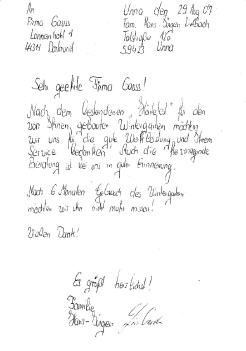 An
Firma Gauss
44319 Dortmund
Unna den 29 Aug 09
Fam. Hans-Jürgen
59423 Unna
Sehr geehrte Firma Gauss!
Nach dem bestandenen "Härtefall" für den
von Ihnen gebauten Wintergarten möchten
wir uns für die gute Werksleistung und Ihrem
Service bedanken. Auch die hervorragende
Beratung ist bei uns in guter Erinnerung.
Nach 6 Monaten Gebrauch des Wintergarten
möchten wir ihn nicht mehr missen!
Vielen Dank!
Es grüßt herzlichst!
Familie
Hans-Jürgen